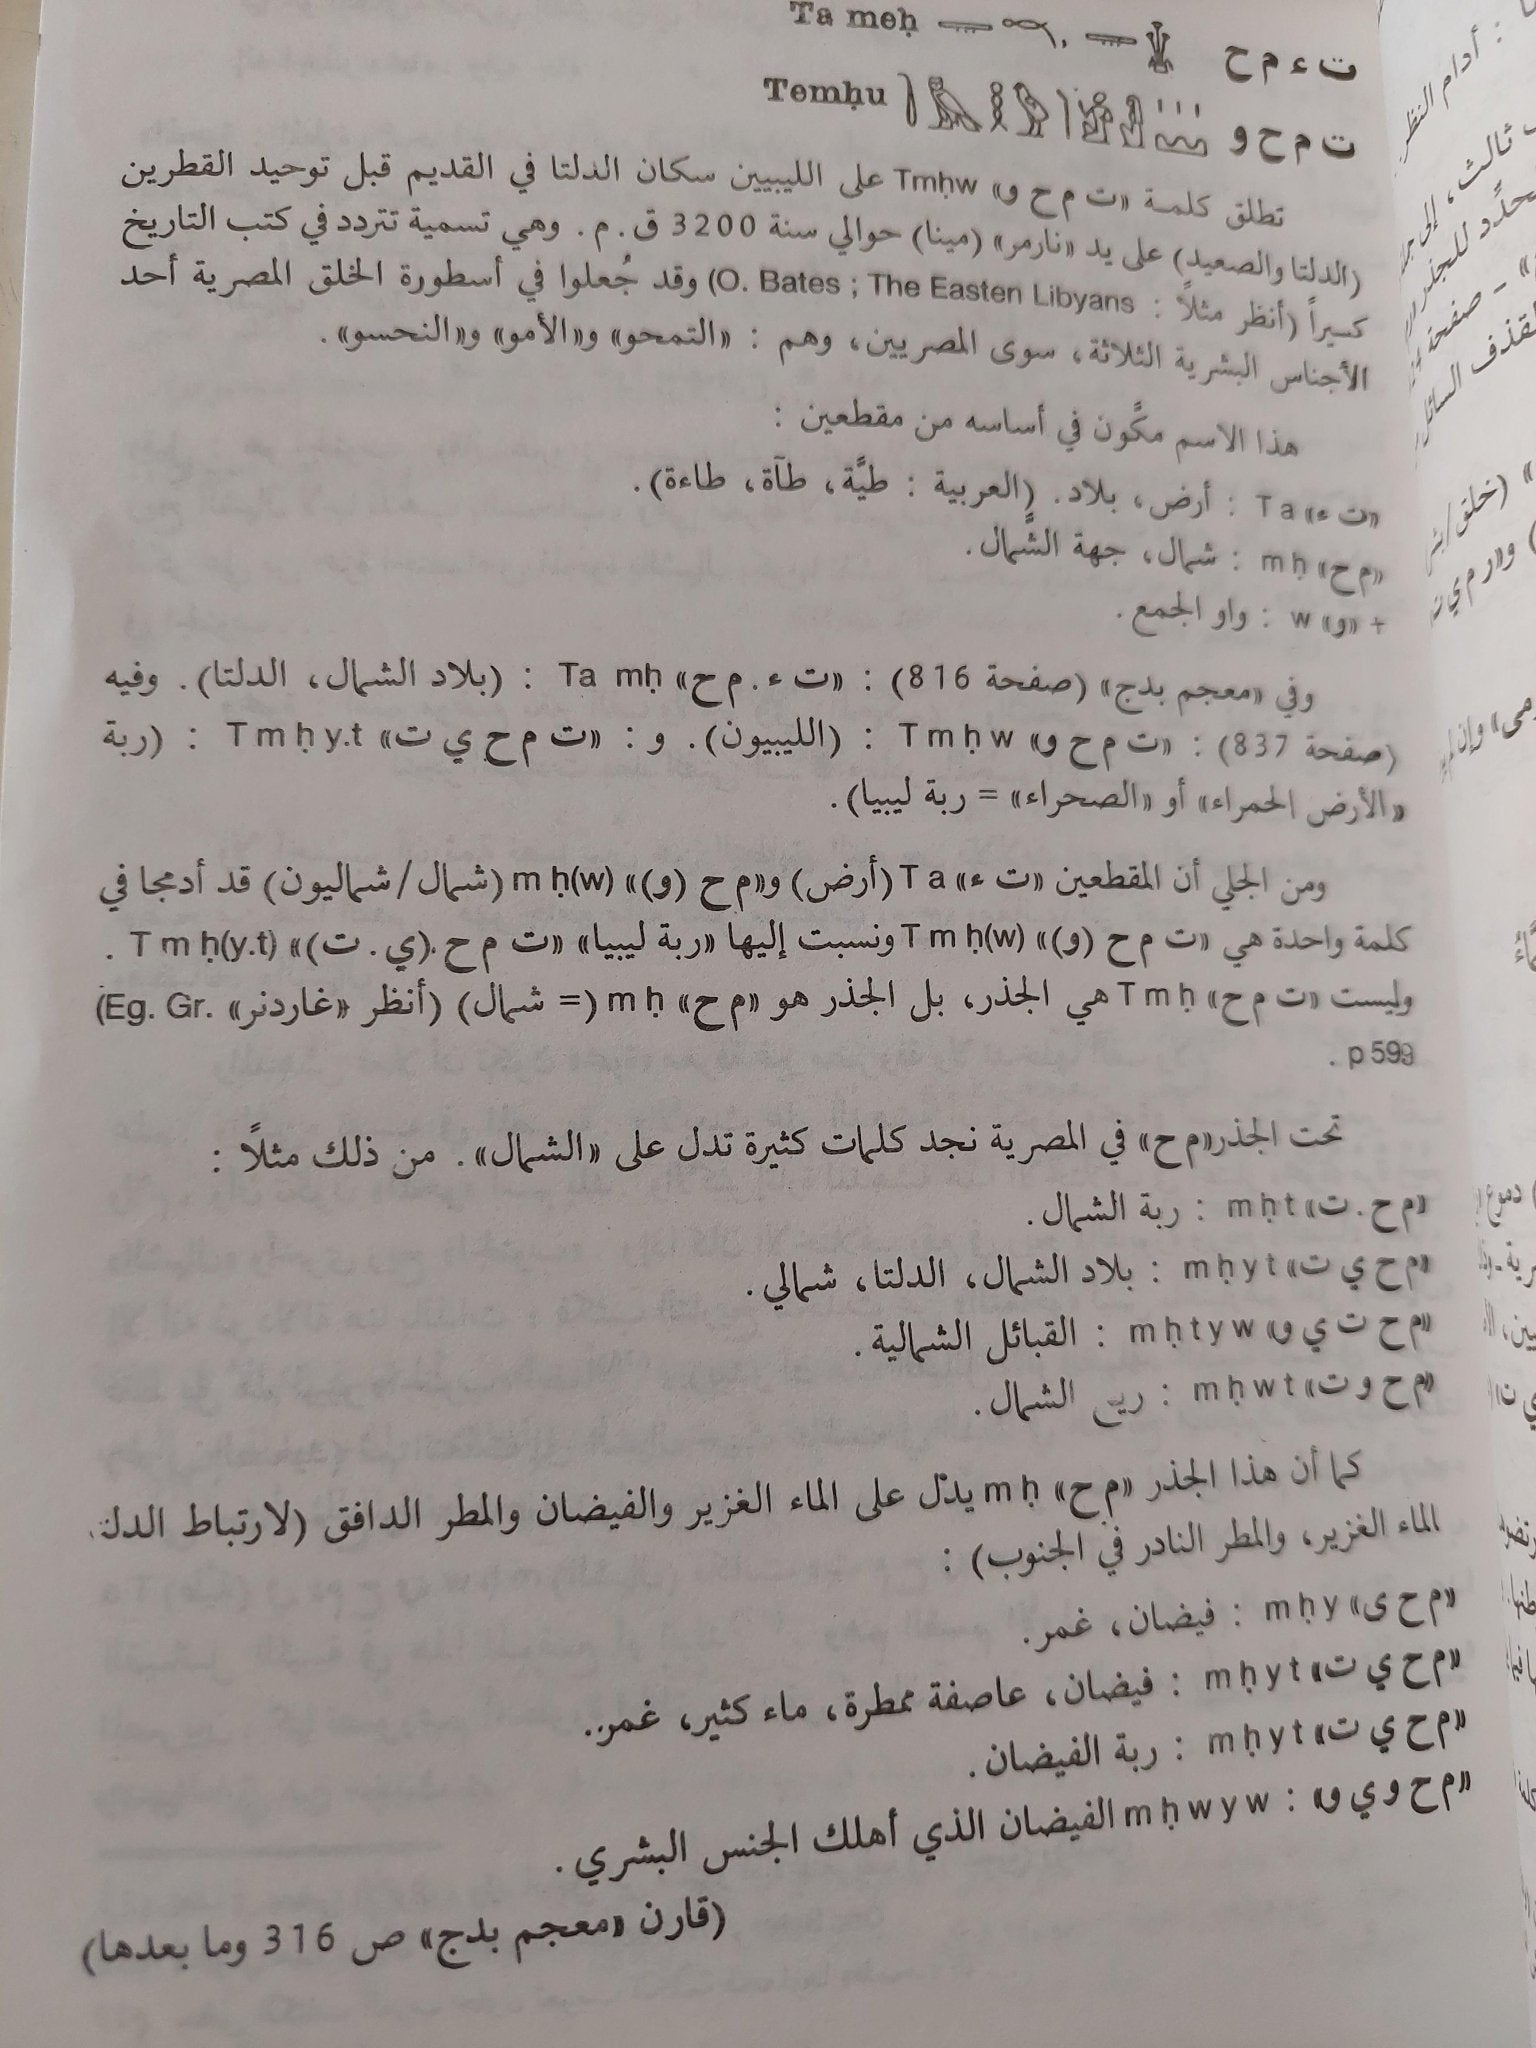 ت ء م ح Ta meḥ
ت م ح و Temḥu
تطلق كلمة «ت م ح و» Tmḥw على الليبيين سكان الدلتا في القديم قبل توحيد القطرين
(الدلتا والصعيد) على يد «نارمر» (مينا) حوالي سنة 3200 ق . م . وهي تسمية تتردد في كتب التاريخ
كسيراً (أنظر مثلاً : O. Bates ; The Easten Libyans) وقد جُعلوا في أسطورة الخلق المصرية أحد
الأجناس البشرية الثلاثة، سوى المصريين، وهم : «التمحو» و«الأمو» و«النحسو» .
هذا الاسم مكَّون في أساسه من مقطعين :
«ت ء» Ta : أرض، بلاد. (العربية : طيَّة، طآة، طاءة).
«م ح» mḥ : شمال، جهة الشَّمال.
+ «و» w : واو الجمع.
وفي «معجم بدج» (صفحة 816) : «ت ء . م ح» Ta mḥ : (بلاد الشمال، الدلتا). وفيه
(صفحة 837) : «ت م ح و» Tmḥw : (الليبيون). و : «ت م ح ي ت» Tmḥy.t : (ربة
«الأرض الحمراء» أو «الصحراء» = ربة ليبيا).
ومن الجلي أن المقطعين «ت ء» Ta (أرض) و«م ح (و)» mḥ(w) (شمال/شماليون) قد أدمجا في
كلمة واحدة هي «ت م ح (و)» Tmḥ(w) ونسبت إليها «ربة ليبيا» «ت م ح .(ي . ت)» Tmḥ(y.t) .
وليست «ت م ح» Tmḥ هي الجذر، بل الجذر هو «م ح» mḥ (= شمال) (أنظر «غاردنر» Eg. Gr.)
p 599 .
تحت الجذر«م ح» في المصرية نجد كلمات كثيرة تدل على «الشمال» . من ذلك مثلاً :
«م ح . ت» mḥt : ربة الشمال.
«م ح ي ت» mḥyt : بلاد الشمال، الدلتا، شمالي.
«م ح ت ي و» mḥtyw : القبائل الشمالية.
«م ح و ت» mḥwt : ريح الشمال.
كما أن هذا الجذر «م ح» mḥ يدّل على الماء الغزير والفيضان والمطر الدافق (لارتباط
الماء الغزير، والمطر النادر في الجنوب) :
«م ح ى» mḥy : فيضان، غمر.
«م ح ي ت» mḥyt : فيضان، عاصفة ممطرة، ماء كثير، غمر..
«م ح ي ت» mḥyt : ربة الفيضان.
«م ح و ي و» : mḥwyw الفيضان الذي أهلك الجنس البشري.
(قارن «معجم بدج» ص 316 وما بعدها)